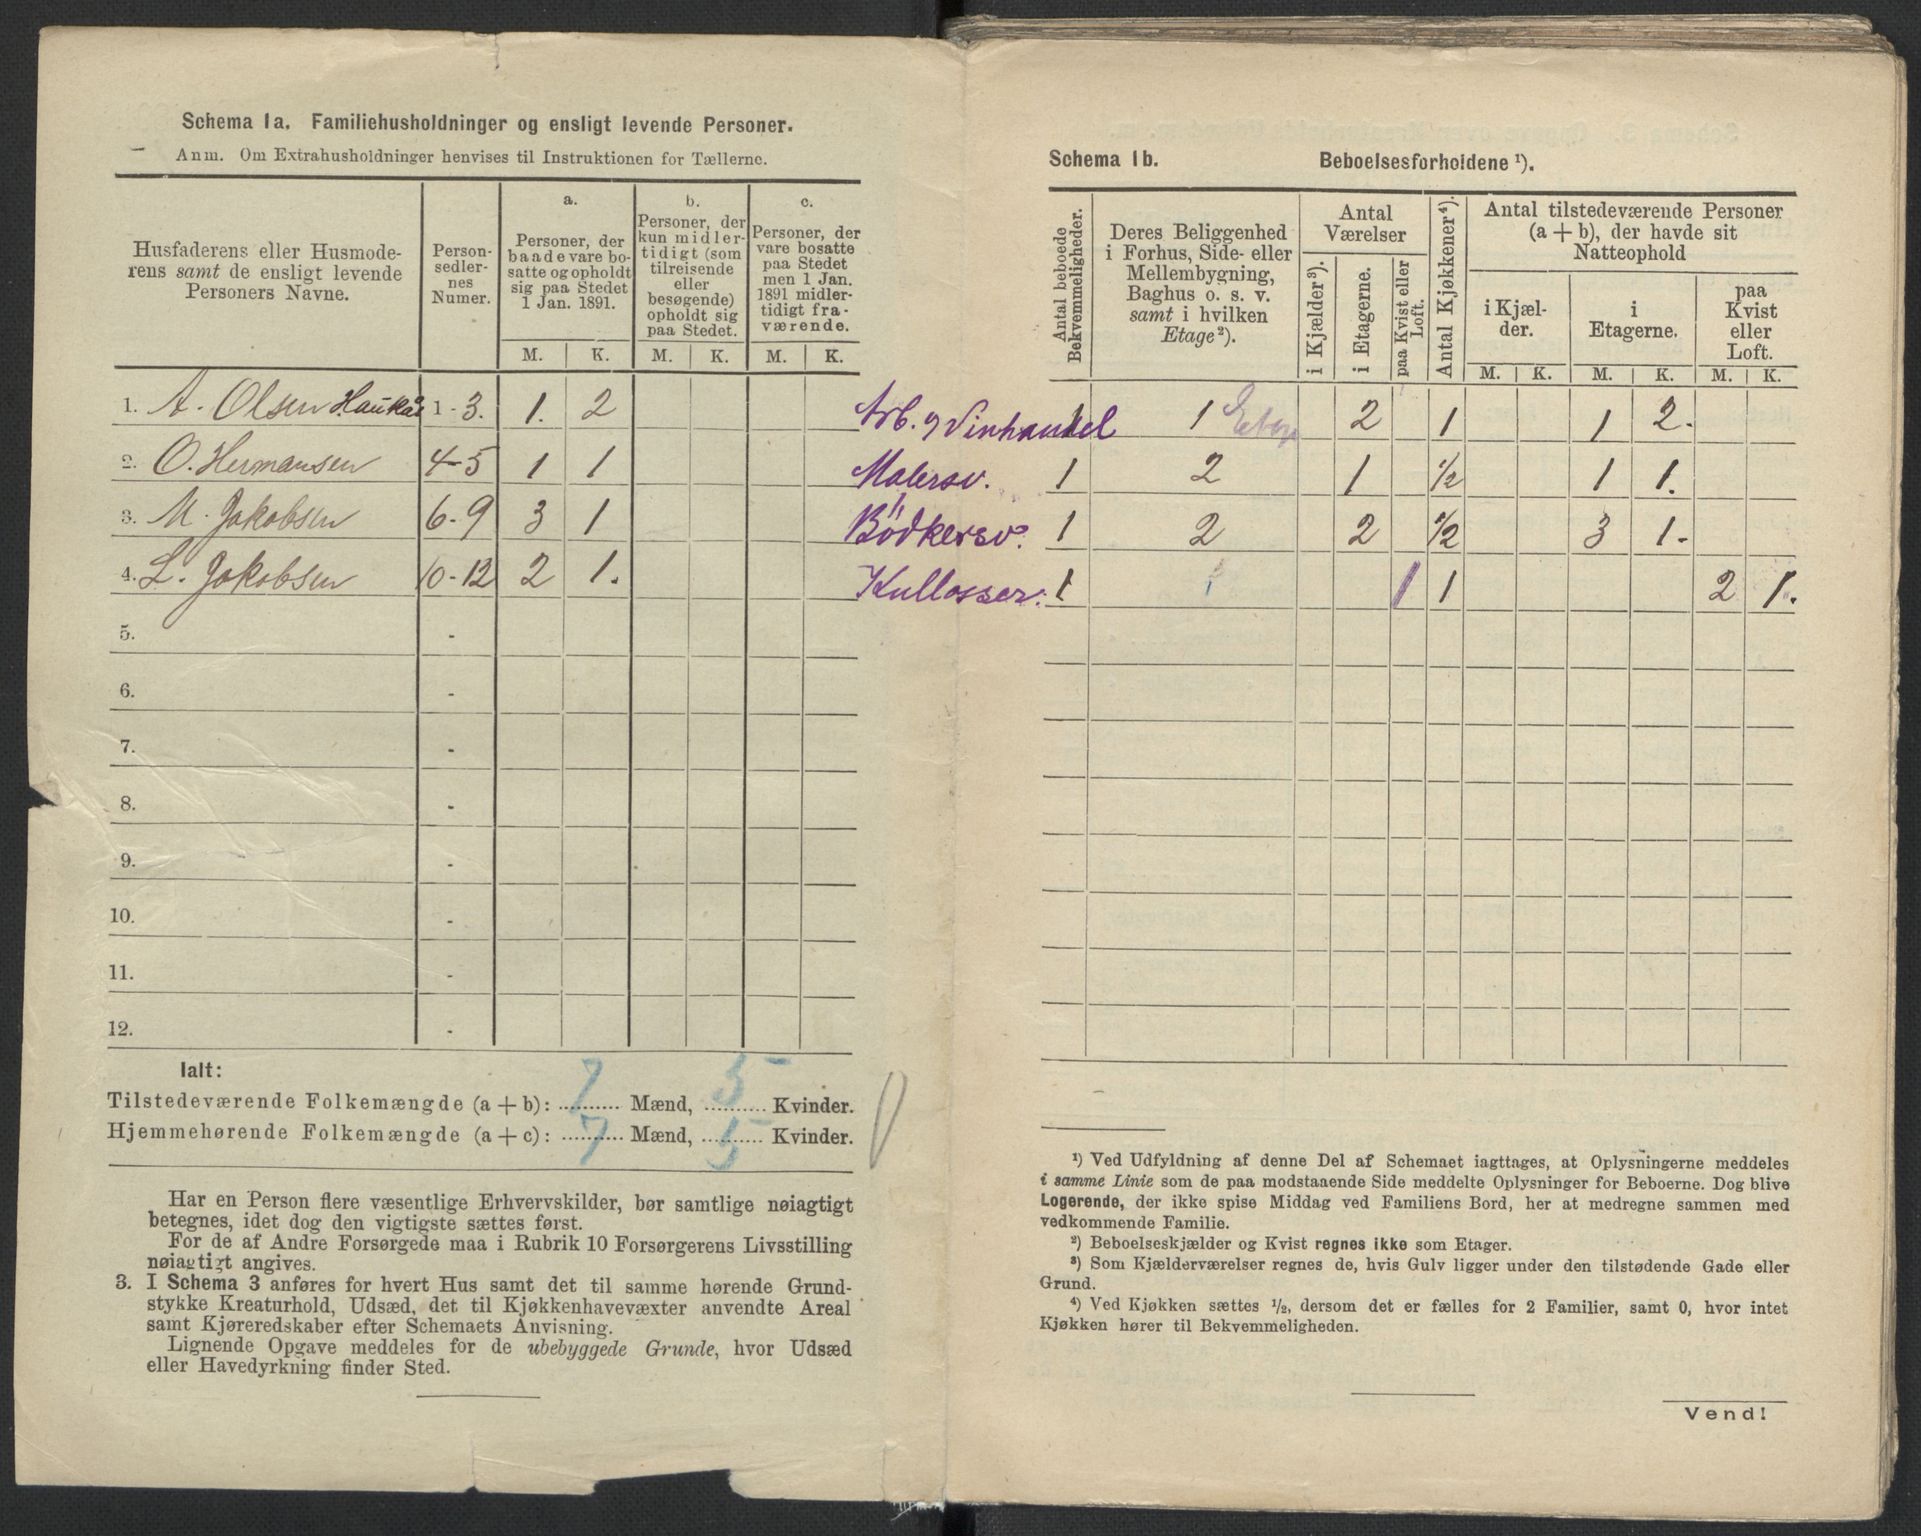 Schema 1a. Familiehusholdninger og ensligt levende Personer.
Anm. Om Extrahusholdninger henvises til Instruktionen for Tællerne.
Husfaderens eller Husmode-
rens samt de ensligt levende
Personers Navne.
Person-
sedler-
nes
Numer.
a.
Personer, der
baade vare bo-
satte og opholdt
sig paa Stedet
1 Jan. 1891.
b.
Personer, der
kun midler-
tidigt (som
tilreisende
eller
besøgende)
opholdt sig
paa Stedet.
c.
Personer, der
vare bosatte
paa Stedet
men 1 Jan.
1891 midler-
tidigt fra-
værende.
M. K. M. K. M. K.
1. A. Olsen 1-3. 1. 2
2. O. Hermansen 4-5 1 1
3. M. Jakobsen 6-9 3 1
4. L. Jakobsen 10-12 2 1.
5. -
6. -
7. -
8. -
9. -
10. -
11. -
12. -
Ialt:
Tilstedeværende Folkemængde (a + b): 7 Mænd, 5 Kvinder.
Hjemmehørende Folkemængde (a + c): 7 Mænd, 5 Kvinder.
Har en Person flere væsentlige Erhvervskilder, bør samtlige nøiagtigt
betegnes, idet dog den vigtigste sættes først.
For de af Andre Forsørgede maa i Rubrik 10 Forsørgerens Livsstilling
nøiagtigt angives.
3. I Schema 3 anføres for hvert Hus samt det til samme hørende Grund-
stykke Kreaturhold, Udsæd, det til Kjøkkenhavevæxter anvendte Areal
samt Kjøreredskaber efter Schemaets Anvisning.
Lignende Opgave meddeles for de ubebyggede Grunde, hvor Udsæd
eller Havedyrkning finder Sted.
Schema 1b. Beboelsesforholdene ¹).
Antal beboede
Bekvemmeligheder.
Deres Beliggenhed
i Forhus, Side- eller
Mellembygning,
Baghus o. s. v.
samt i hvilken
Etage ²).
Antal
Værelser
i Kjælder ³).
i Etagerne.
paa Kvist eller
Loft.
Antal Kjøkkener ⁴).
Antal tilstedeværende Personer
(a + b), der havde sit
Natteophold
i Kjæl-
der.
i
Etagerne.
paa
Kvist
eller
Loft.
M. K. M. K. M. K.
Arb. 1 1 Etage 2 1 1 2.
Malersv. 1 2 1 1/2 1 1.
Bödkersv. 1 2 2 1/2 3 1.
Kullosser. 1 1 1 1 2 1.
¹) Ved Udfyldning af denne Del af Schemaet iagttages, at Oplysningerne meddeles
i samme Linie som de paa modstaaende Side meddelte Oplysninger for Beboerne. Dog blive
Logerende, der ikke spise Middag ved Familiens Bord, her at medregne sammen med
vedkommende Familie.
²) Beboelseskjælder og Kvist regnes ikke som Etager.
³) Som Kjælderværelser regnes de, hvis Gulv ligger under den tilstødende Gade eller
Grund.
⁴) Ved Kjøkken sættes ½, dersom det er fælles for 2 Familier, samt 0, hvor intet
Kjøkken hører til Bekvemmeligheden.
Vend!